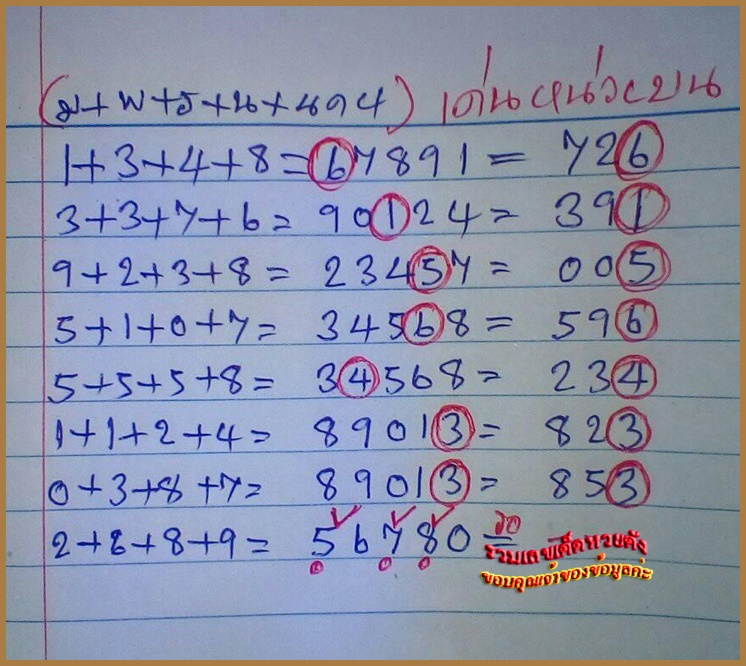 (ม+พ+5+น+นคฯ) เด่นหน่วยบน
1+3+4+8=67891=726
3+3+7+6=90124=391
9+2+3+8=23457=005
5+1+0+7=34568=596
5+5+5+8=34568=234
1+1+2+4=89013=823
0+3+8+7=89013=853
2+8+8+9=56780=รอ
รวมเลขเด็ดหวยดัง
ขอบคุณเจ้าของข้อมูลค่ะ